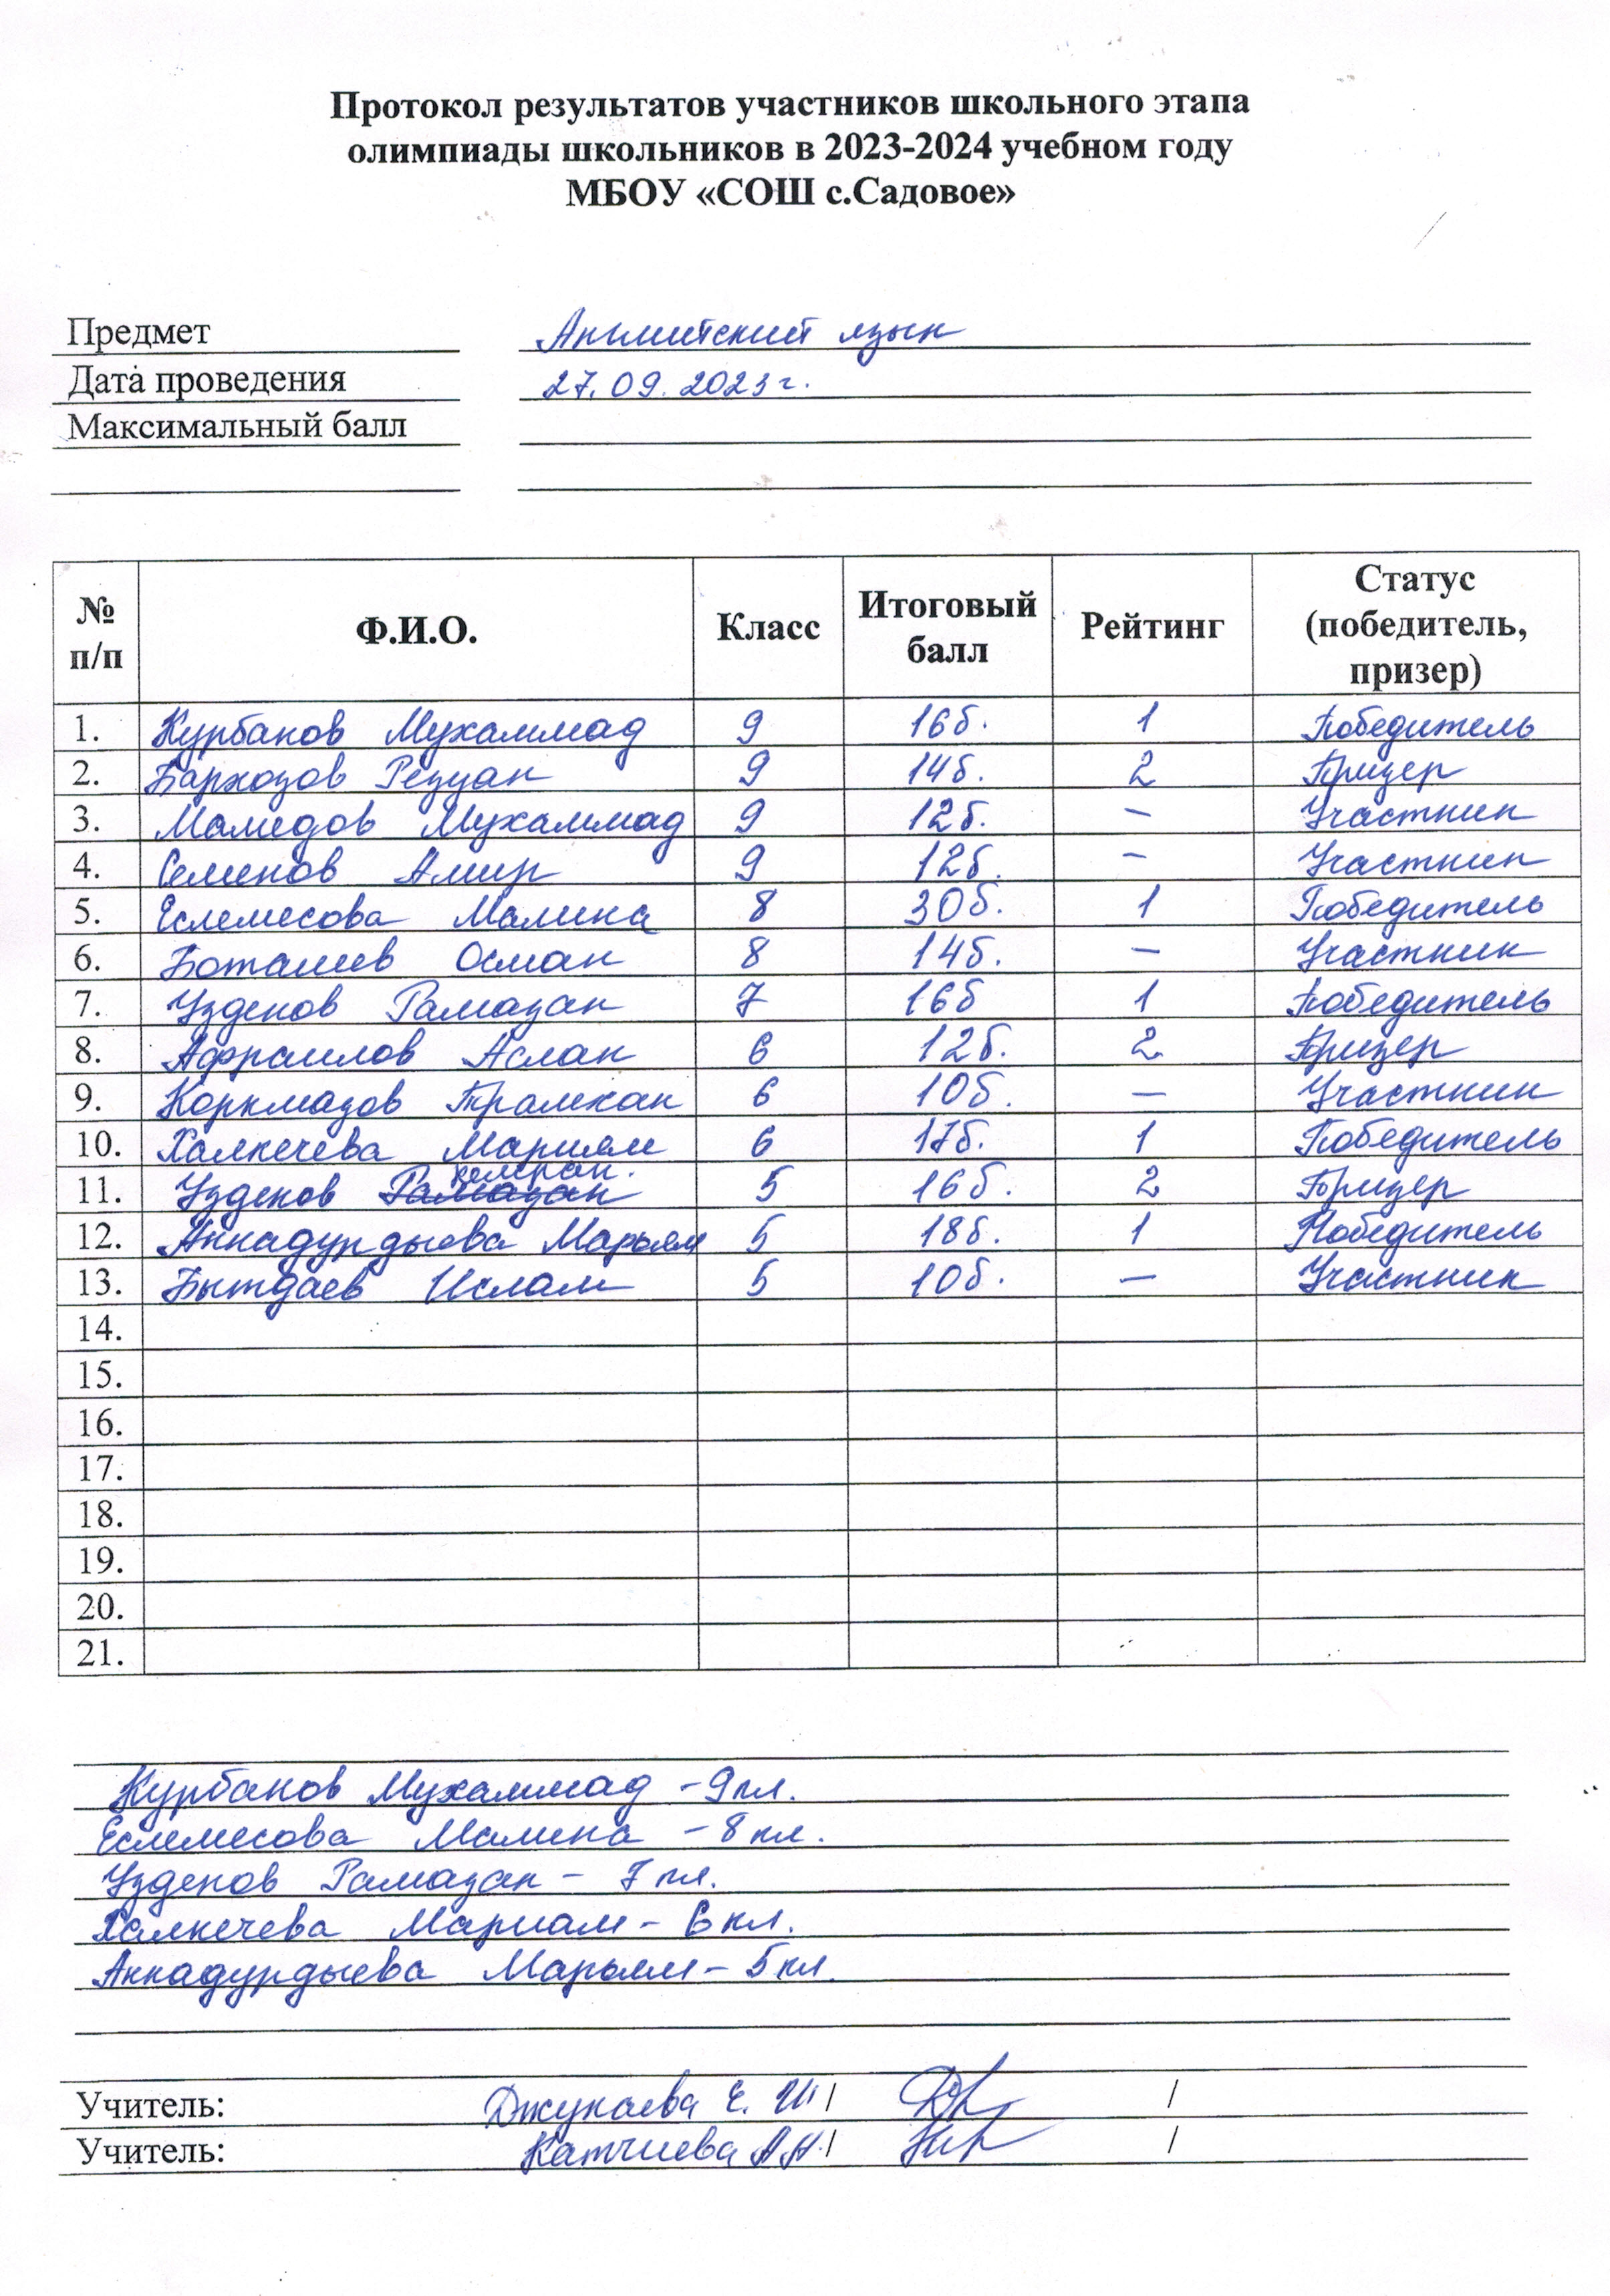 Протокол результатов участников школьного этапа
олимпиады школьников в 2023-2024 учебном году
МБОУ «СОШ с.Садовое»
Предмет Английский язык
Дата проведения 27.09.2023г.
Максимальный балл
№ п/п Ф.И.О. Класс Итоговый балл Рейтинг Статус (победитель, призер)
1. Курбанов Мухаммад 9 16б. 1 Победитель
2. Бархозов Резуан 9 14б. 2 Призер
3. Мамедов Мухаммад 9 12б. – Участник
4. Семенов Амир 9 12б. – Участник
5. Еслемесова Малика 8 30б. 1 Победитель
6. Боташев Осман 8 14б. – Участник
7. Узденов Рамазан 7 16б 1 Победитель
8. Афраилов Аслан 6 12б. 2 Призер
9. Коркмазов Трамкан 6 10б. – Участник
10. Халкечева Мариям 6 17б. 1 Победитель
11. Узденов Рамазан 5 16б. 2 Призер
12. Аннадурдыева Марьям 5 18б. 1 Победитель
13. Бытдаев Ислам 5 10б. – Участник
14.
15.
16.
17.
18.
19.
20.
21.
Курбанов Мухаммад - 9кл.
Еслемесова Малика - 8 кл.
Узденов Рамазан - 7 кл.
Халкечева Мариам - 6 кл.
Аннадурдыева Марьям - 5 кл.
Учитель: Джукаева Е. Ш / /
Учитель: Катчиева А.Н. / /